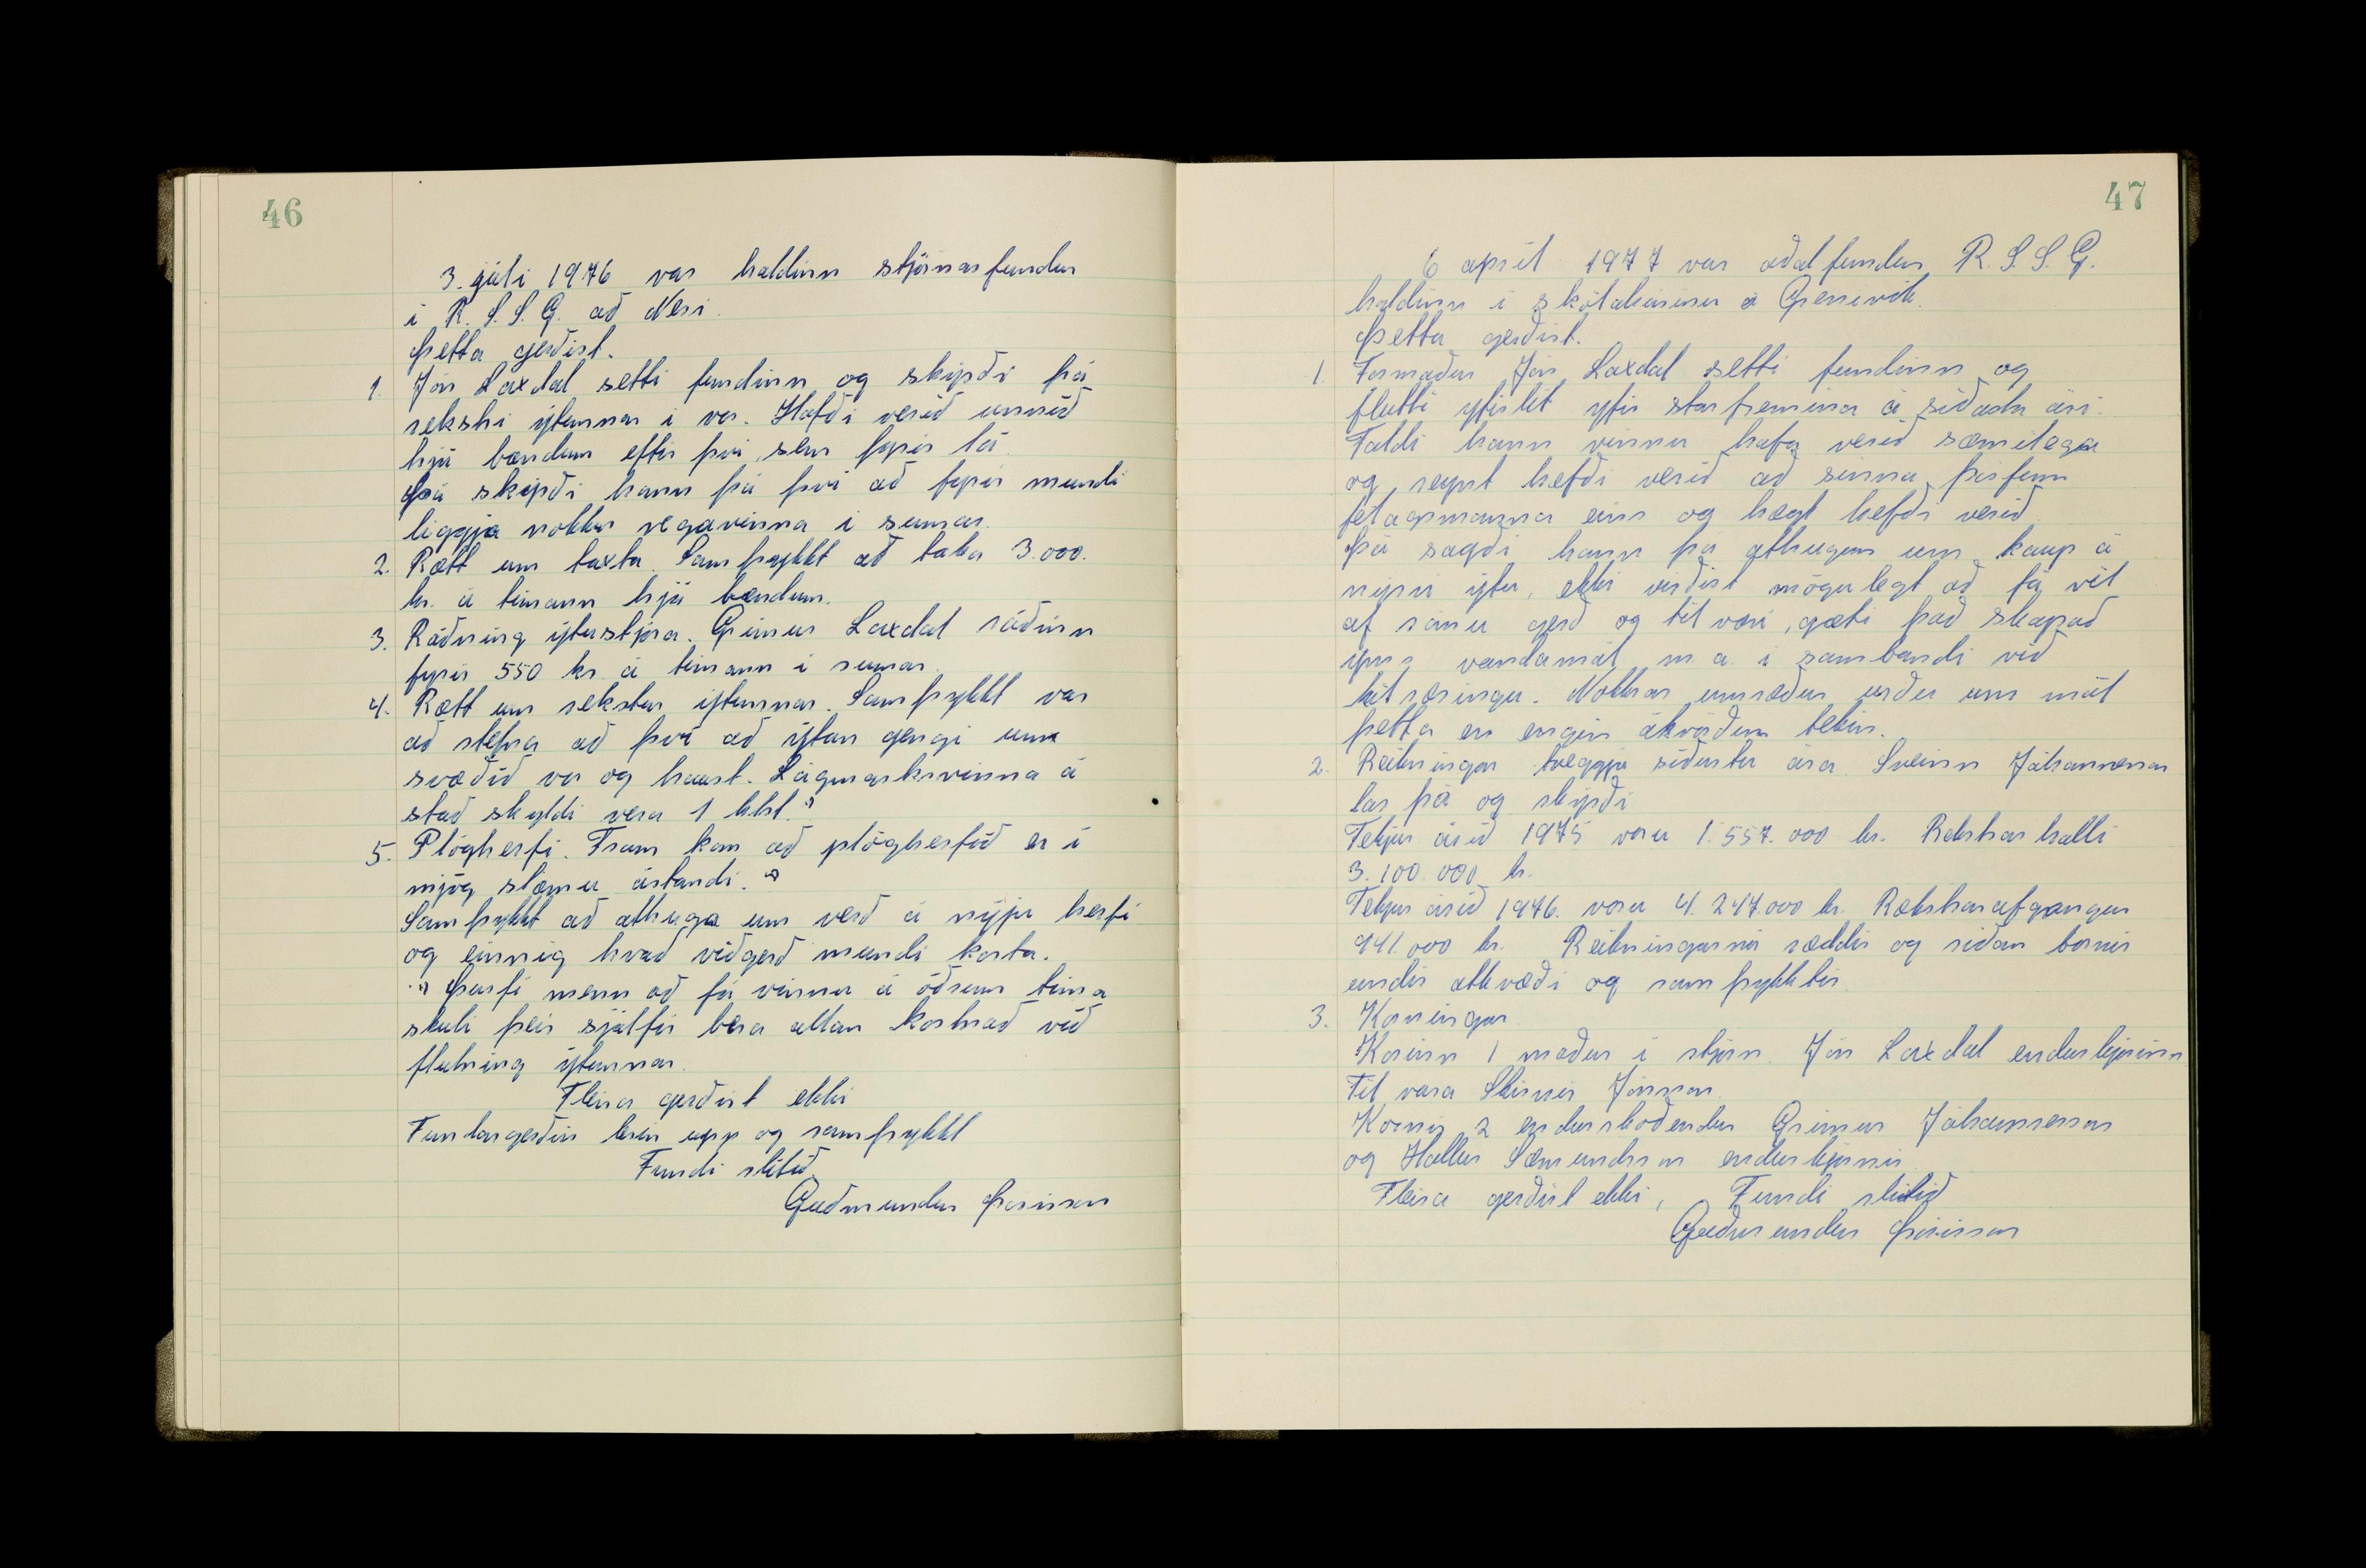 46
3. júlí 1976 var haldinn stjórnarfundur
í R. S. S. G. að Nesi.
Þetta gerðist.
1. Jón Laxdal setti fundinn og skýrði frá
rekstri ýtunnar í vor. Hafði verið unnið
hjá bændum eftir því sem fyrir lá.
Þá skýrði hann frá því að fyrir mundi
liggja nokkur vegavinna í sumar.
2. Rætt um taxta. Samþykkt að taka 3.000.
kr. á tímann hjá bændum.
3. Ráðning ýtustjóra. Grímur Laxdal ráðinn
fyrir 550 kr. á tímann í sumar.
4. Rætt um rekstur ýtunnar. Samþykkt var
að stefna að því að ýtan gengi um
svæðið vor og haust. Lágmarksvinna á
stað skyldi vera 1 klst.
5. Plógherfi. Fram kom að plógherfið er í
mjög slæmu ástandi.
Samþykkt að athuga um verð á nýju herfi
og einnig hvað viðgerð mundi kosta.
Þurfi menn að fá vinnu á öðrum tíma
skuli þeir sjálfir bera allan kostnað við
flutning ýtunnar.
Fleira gerðist ekki
Fundargerðin lesin upp og samþykkt
Fundi slitið
Guðmundur Þórisson
47
6 apríl 1977 var aðalfundur R. S. S. G.
haldinn í skólahúsinu á Grenivík.
Þetta gerðist.
1. Formaður Jón Laxdal setti fundinn og
flutti yfirlit yfir starfsemina á síðasta ári.
Taldi hann vinnu hafa verið sæmilega
og reynt hefði verið að sinna þörfum
félagsmanna eins og hægt hefði verið.
Þá sagði hann frá athugun um kaup á
nýrri ýtu, ekki virðist mögulegt að fá vél
af sömu gerð og til væri, gæti það skapað
ýmis vandamál m.a. í sambandi við
fjármagn. Nokkrar umræður urðu um mál
þetta en engin ákvörðun tekin.
2. Reikningar tveggja síðustu ára. Sveinn Jóhannesson
las þá og skýrði
Tekjur árið 1975 voru 1.557.000 kr. Rekstrarhalli
3.100.000 kr.
Tekjur árið 1976. voru 4.247.000 kr. Rekstrarafgangur
941.000 kr. Reikningarnir ræddir og síðan bornir
undir atkvæði og samþykktir.
3. Kosningar
Kosinn 1 maður í stjórn. Jón Laxdal endurkjörinn
Til vara Skírnir Jónsson.
Kosnir 2 endurskoðendur Grímur Jóhannesson
og Hallur Sæmundsson endurkjörnir
Fleira gerðist ekki, Fundi slitið
Guðmundur Þórisson